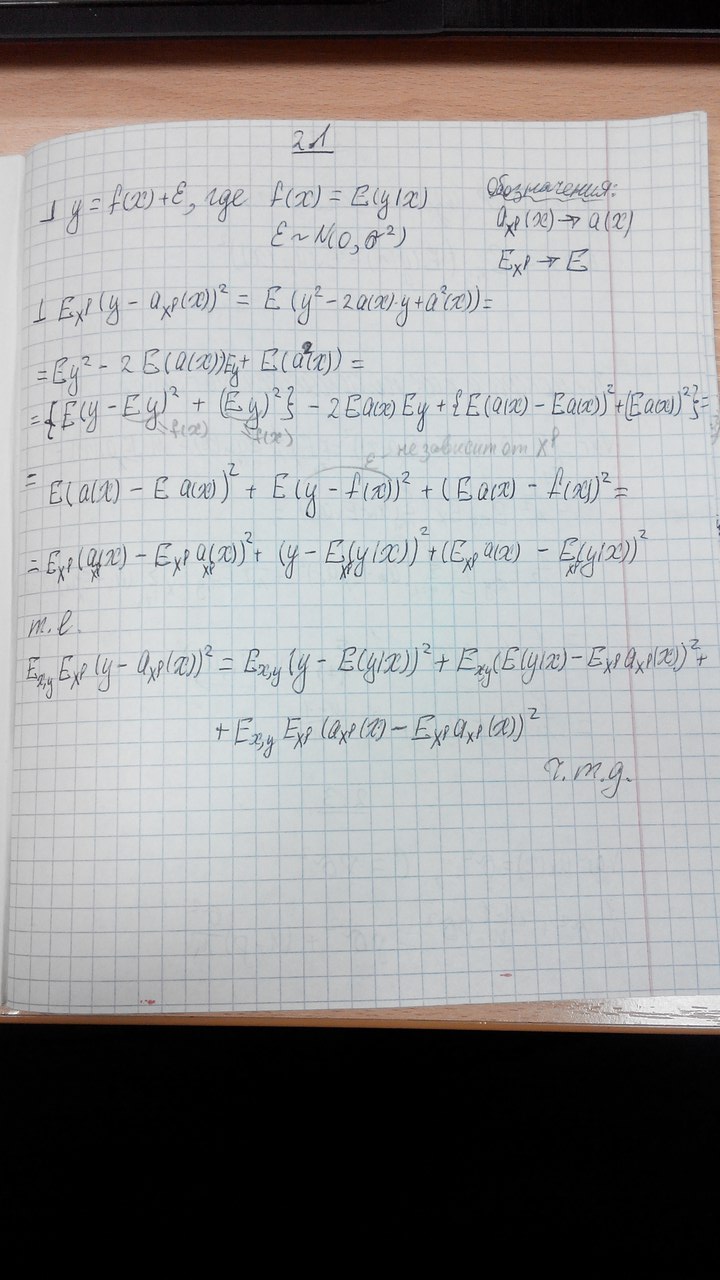 21
⊥ y = f(x) + ε, где f(x) = E(y|x)
ε ~ N(0, σ²)
Обозначения:
a_{X^ℓ}(x) → a(x)
E_{X^ℓ} → E
⊥ E_{X^ℓ}(y - a_{X^ℓ}(x))² = E(y² - 2a(x)·y + a²(x)) =
= Ey² - 2E(a(x))Ey + E(a²(x)) =
= {E(y - Ey)² + (Ey)²} - 2Ea(x)Ey + {E(a(x) - Ea(x))² + (Ea(x))²} =
f(x) f(x)
ε - не зависит от X^ℓ
= E(a(x) - Ea(x))² + E(y - f(x))² + (Ea(x) - f(x))² =
= E_{X^ℓ}(a_{X^ℓ}(x) - E_{X^ℓ}a_{X^ℓ}(x))² + (y - E_{X^ℓ}(y|x))² + (E_{X^ℓ}a(x) - E_{X^ℓ}(y|x))²
т.е.
E_{x,y}E_{X^ℓ}(y - a_{X^ℓ}(x))² = E_{x,y}(y - E(y|x))² + E_{xy}(E(y|x) - E_{X^ℓ}a_{X^ℓ}(x))² +
+ E_{x,y}E_{X^ℓ}(a_{X^ℓ}(x) - E_{X^ℓ}a_{X^ℓ}(x))²
ч.т.д.